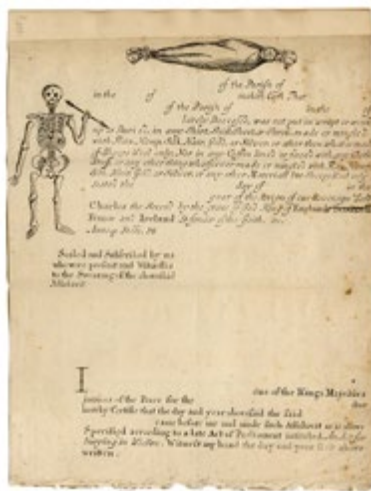 of the Parish of
in the of maketh Oath That
of the Parish of in the of
lately Deceased, was not put in
in any Shirt, Shift, Sheet or Shroud, made or mingled
with Flax, Hemp, Silk, Hair, Gold, or Silver or other than what is made
of Sheeps Wooll only. Nor in any Coffin lined or faced with any Cloth
Stuff, or any other thing whatsoever made or mingled with Flax, Hemp
Silk, Hair, Gold or Silver or any other Materiall but Sheeps Wooll only
Dated the day of in the
year of the Reign of our Soveraign Lord
Charles the Second by the grace of God King of England
France and Ireland Defender of the faith
Sealed and Subscribed by us
who were present and Witnesses
to the Swearing of the abovesaid
Affidavit
I one of the Kings Majesties
Justices of the Peace for the doe
hereby Certifie that the day and year abovesaid the said
came before me and made such Affidavit as is above
Specified according to a late Act of Parliament intituled An Act for
burying in Wollen. Witness my hand the day and year first above
written.